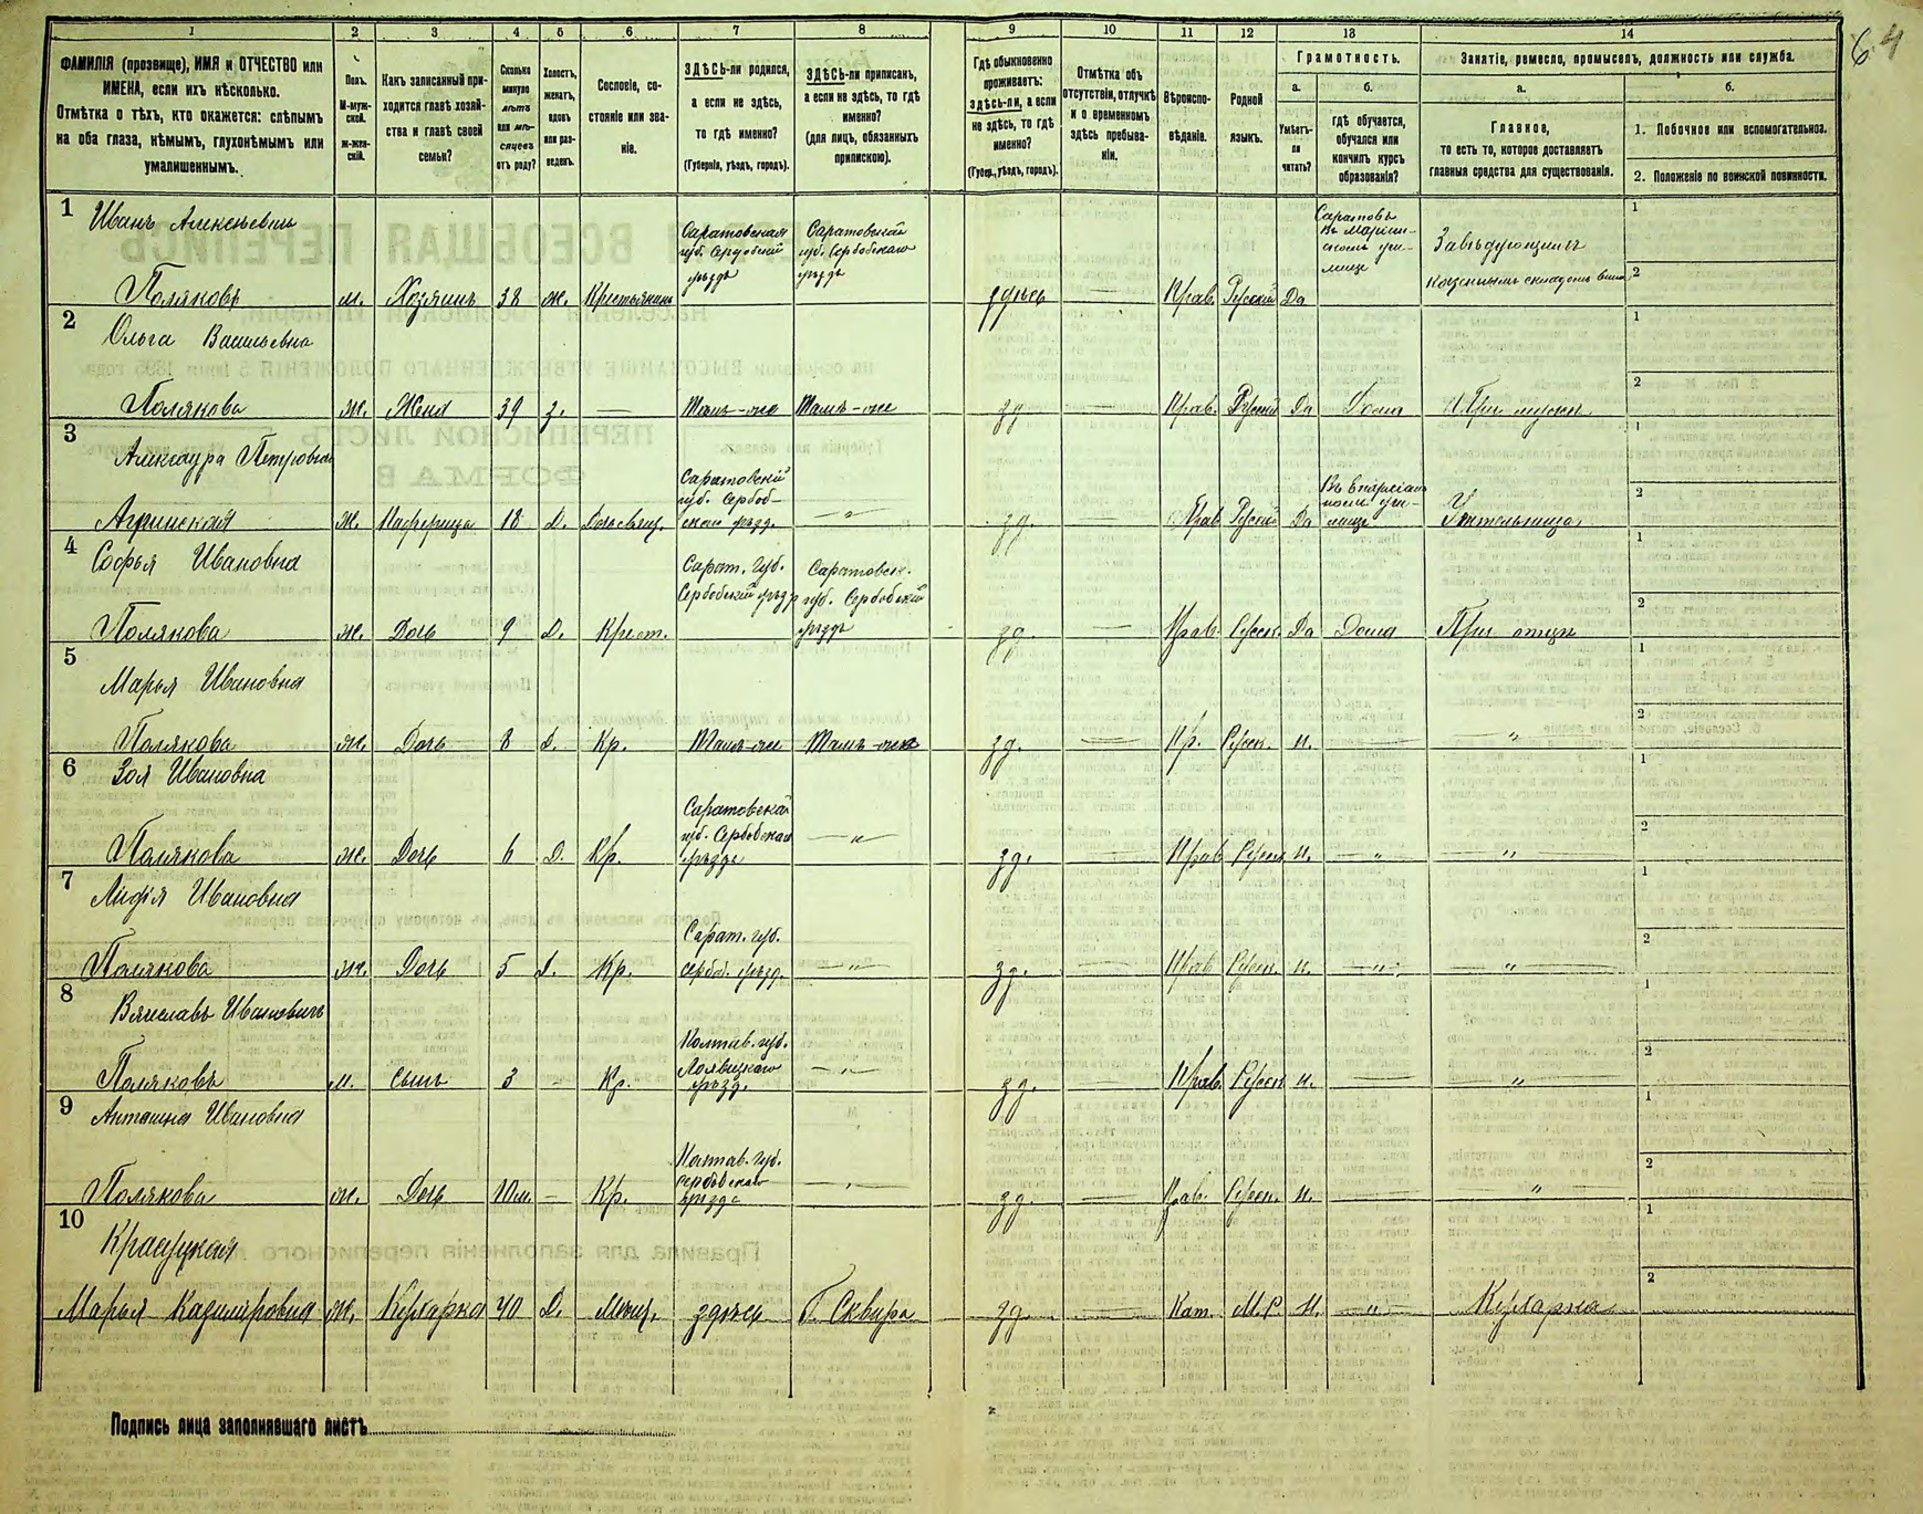 64
1 2 3 4 5 6 7 8 9 10 11 12 13 14
ФАМИЛІЯ (прозвище), ИМЯ и ОТЧЕСТВО или
ИМЕНА, если ихъ нѣсколько.
Отмѣтка о тѣхъ, кто окажется: слѣпымъ
на оба глаза, нѣмымъ, глухонѣмымъ или
умалишеннымъ.
Полъ.
М-муж-
ской.
ж-жен-
скій.
Какъ записанный при-
ходится главѣ хозяй-
ства и главѣ своей
семьи?
Сколько
минуло
лѣтъ
или мѣ-
сяцевъ
отъ роду?
Холостъ,
женатъ,
вдовъ
или раз-
веденъ.
Сословіе, со-
стояніе или зва-
ніе.
ЗДѢСЬ-ли родился,
а если не здѣсь,
то гдѣ именно?
(Губернія, уѣздъ, городъ).
ЗДѢСЬ-ли приписанъ,
а если не здѣсь, то гдѣ
именно?
(для лицъ, обязанныхъ
припискою).
Гдѣ обыкновенно
проживаетъ:
здѣсь-ли, а если
не здѣсь, то гдѣ
именно?
(Губер., уѣздъ, городъ).
Отмѣтка объ
отсутствіи, отлучкѣ
и о временномъ
здѣсь пребыва-
ніи.
Вѣроиспо-
вѣданіе.
Родной
языкъ.
Грамотность.
а.
Умѣетъ-
ли
читать?
б.
гдѣ обучается,
обучался или
кончилъ курсъ
образованія?
Занятіе, ремесло, промыселъ, должность или служба.
а.
Главное,
то есть то, которое доставляетъ
главныя средства для существованія.
б.
1. Побочное или вспомогательное.
2. Положеніе по воинской повинности.
1 Иванъ Алексѣевичъ
Поляковъ м. Хозяинъ 38 ж. Крестьянинъ
Саратовская
губ. Сердобскій
уѣздъ
Саратовской
губ. Сердобскаго
уѣзда
здѣсь — Прав. Русскій Да
Саратовъ
въ Маріин-
скомъ учи-
лищѣ
Завѣдующій
Казеннымъ складомъ вина
2 Ольга Васильевна
Полякова ж. Жена 39 з. — Тамъ-же Тамъ-же зд. — Прав. Русскій Да Дома При мужѣ
3 Александра Петровна
Саратовской
губ. Сердоб-
скаго уѣзд.
Въ Епархіаль
номъ учи-
лищѣ
ж. 18 Д. — " — зд. — Прав. Русскій Да Учительница
4 Софья Ивановна
Сарат. Губ.
Сердобскій уѣзд
Саратовск.
губ. Сердобскій
уѣздъ
Полякова ж. Дочь 9 Д. Крест. зд. — Прав. Русск. Да Дома При отцѣ
5 Марья Ивановна
Полякова ж. Дочь 8 Д. Кр. Тамъ-же Тамъ-же зд. — Пр. Русск. н. — "
6 Зоя Ивановна
Саратовской
губ. Сердобскаго
уѣзда
Полякова ж. Дочь 6 Д. Кр. — " — зд. — Прав. Русск. н. — " — "
7 Лидія Ивановна
Сарат. губ.
Сердоб. уѣзд.
Полякова ж. Дочь 5 Д. Кр. — " — зд. — Прав. Русск. н. — " — "
8 Вячеславъ Ивановичъ
Полтав. губ.
уѣзд.
Поляковъ м. Сынъ 3 - Кр. — " — зд. — Прав. Русск. н. — "
9 Антонина Ивановна
Полтав. Губ.
уѣзда
Полякова ж. Дочь 10 м. — Кр. — " — зд. — Прав. Русск. н. — "
10
Марья Казиміровна ж. Кухарка 40 Д. Мѣщ. здѣсь Г. Сквира зд. — Кат. М.Р. Н. — " — Кухарка
1
2
Подпись лица заполнявшаго листъ